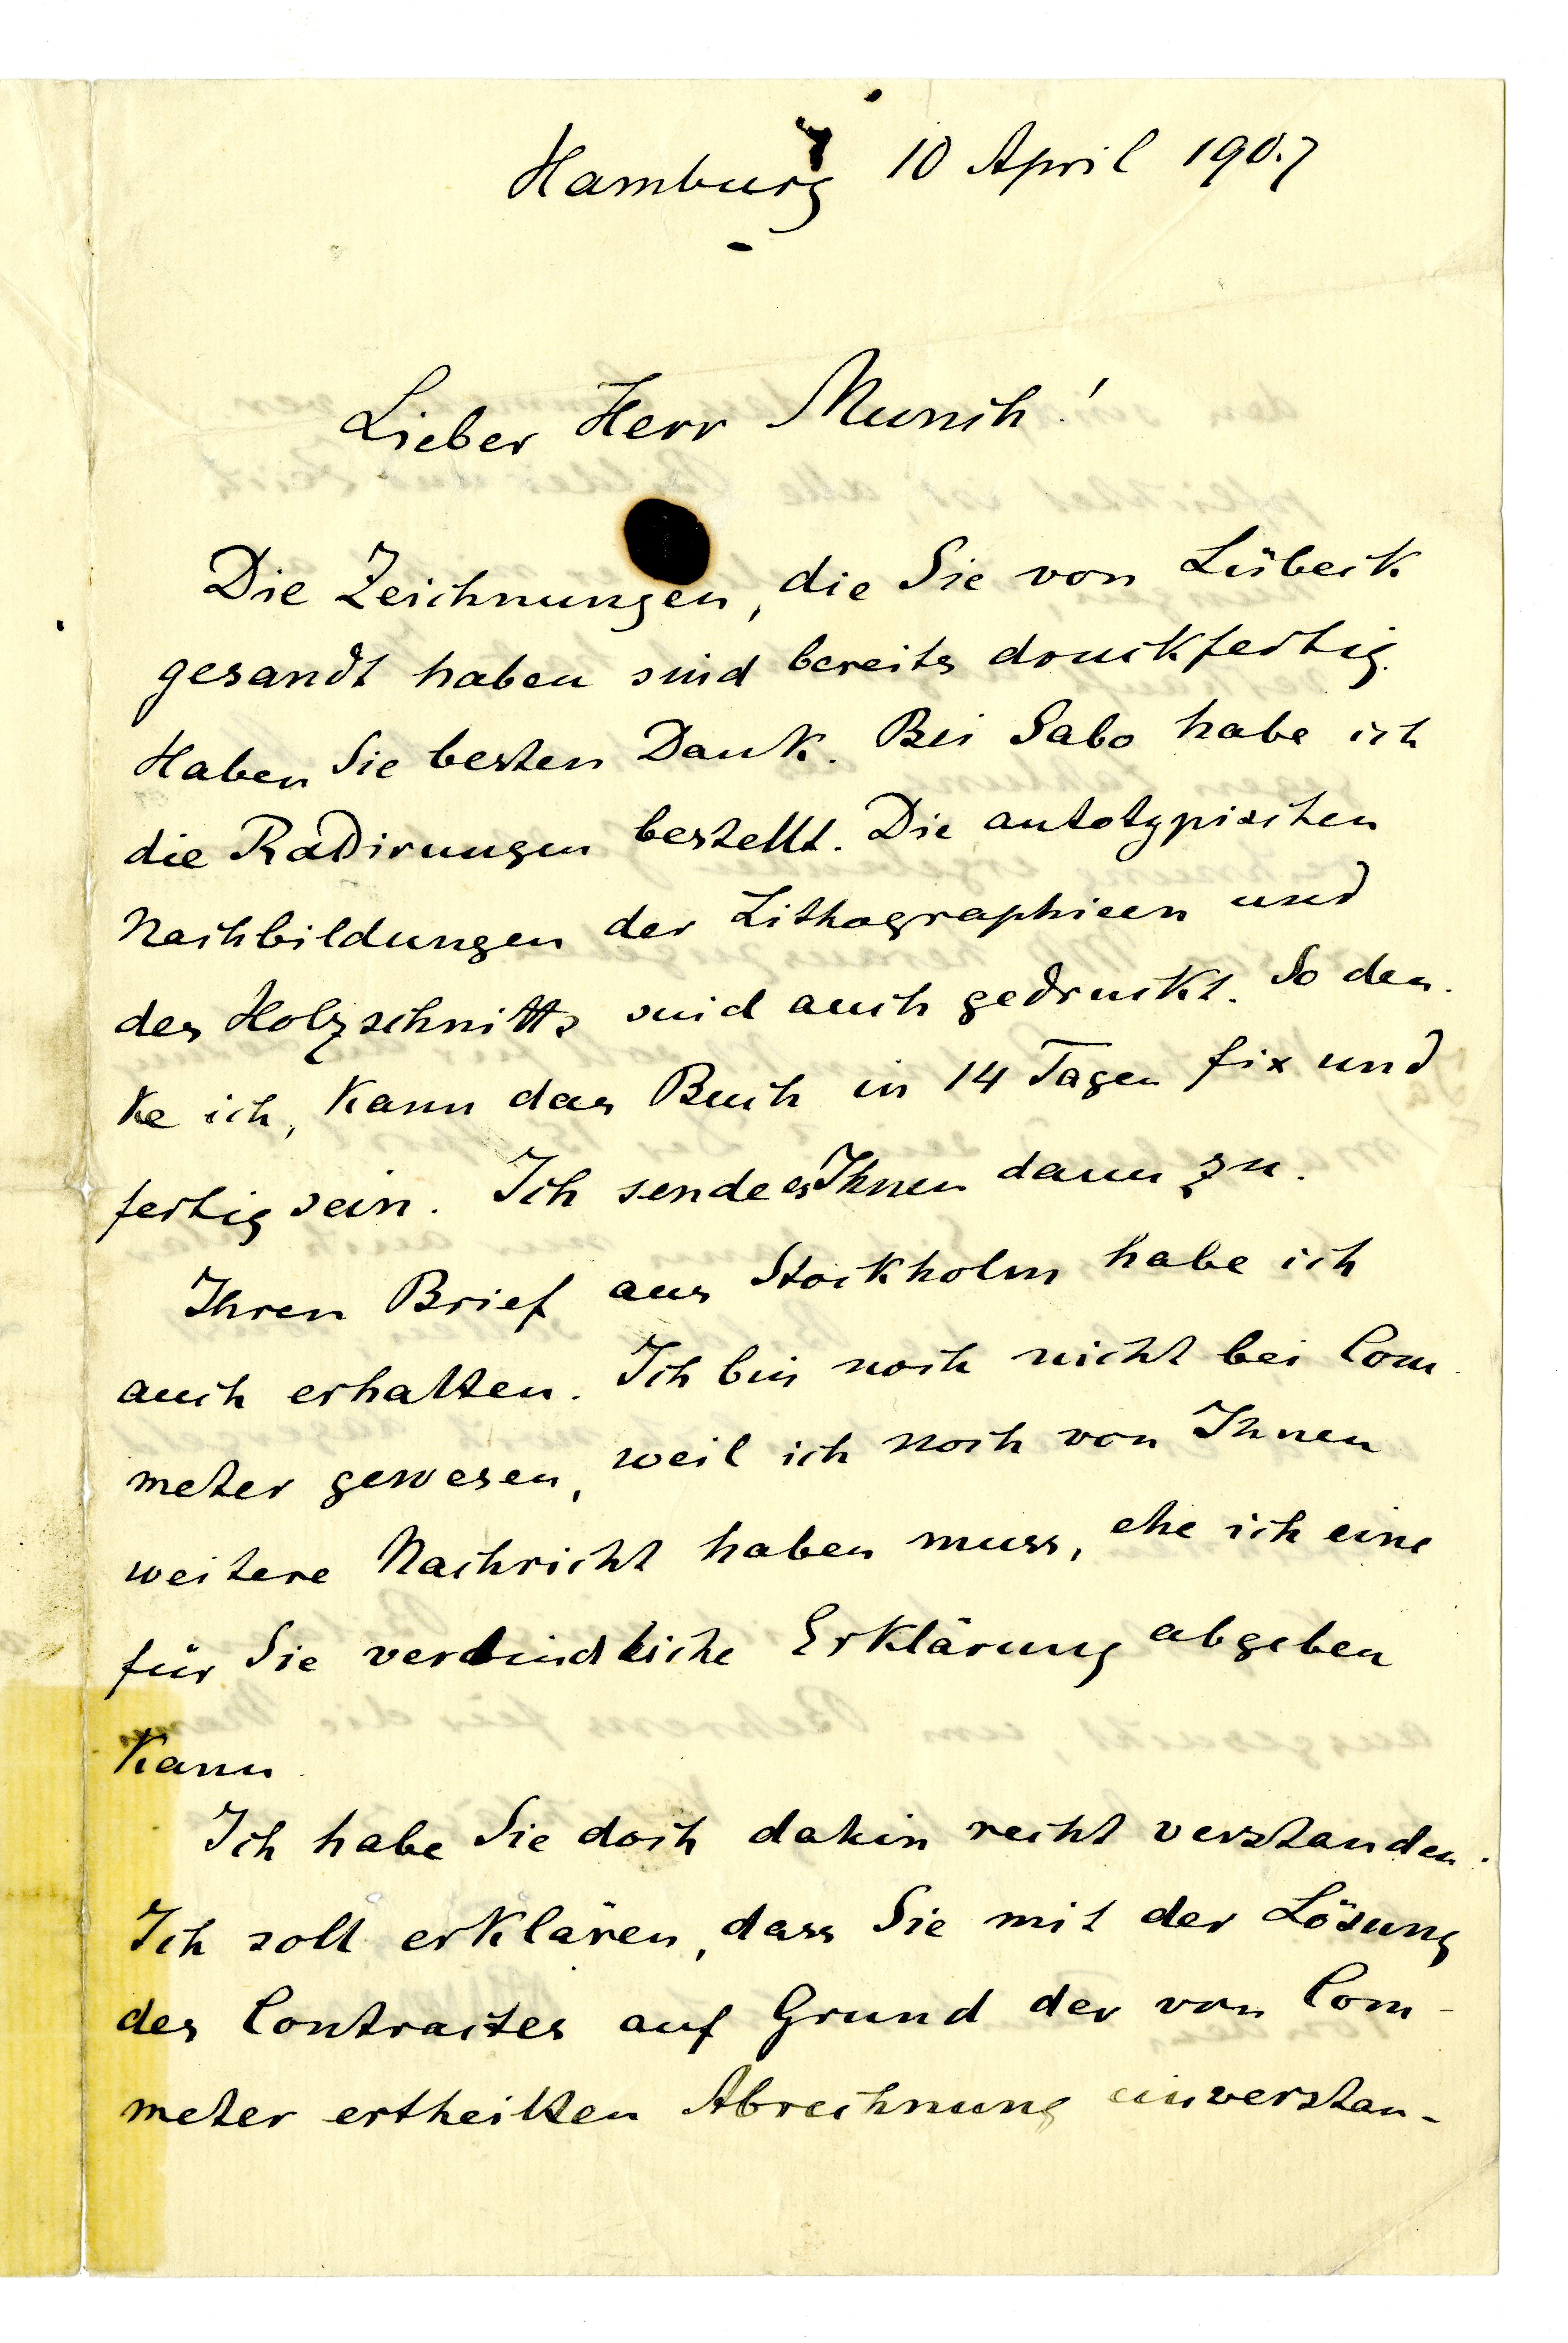 Hamburg 10 April 1907
Lieber Herr Munch!
Die Zeichnungen, die Sie von Lübeck
gesandt haben sind bereits druckfertig.
Haben Sie besten Dank. Bei Sabo habe ich
die Radirungen bestellt. Die autotypischen
Nachbildungen der Lithographieen und
des Holzschnitts sind auch gedruckt. So den-
ke ich, kann das Buch in 14 Tagen fix und
fertig sein. Ich sende es Ihnen dann zu.
Ihren Brief aus Stockholm habe ich
auch erhalten. Ich bin noch nicht bei Com-
meter gewesen, weil ich noch von Ihnen
weitere Nachricht haben muss, ehe ich eine
für Sie verbindliche Erklärung abgeben
kann.
Ich habe Sie doch dahin recht verstanden.
Ich soll erklären, dass Sie mit der Lösung
des Contractes auf Grund der von Com-
meter ertheilten Abrechnung einverstan-